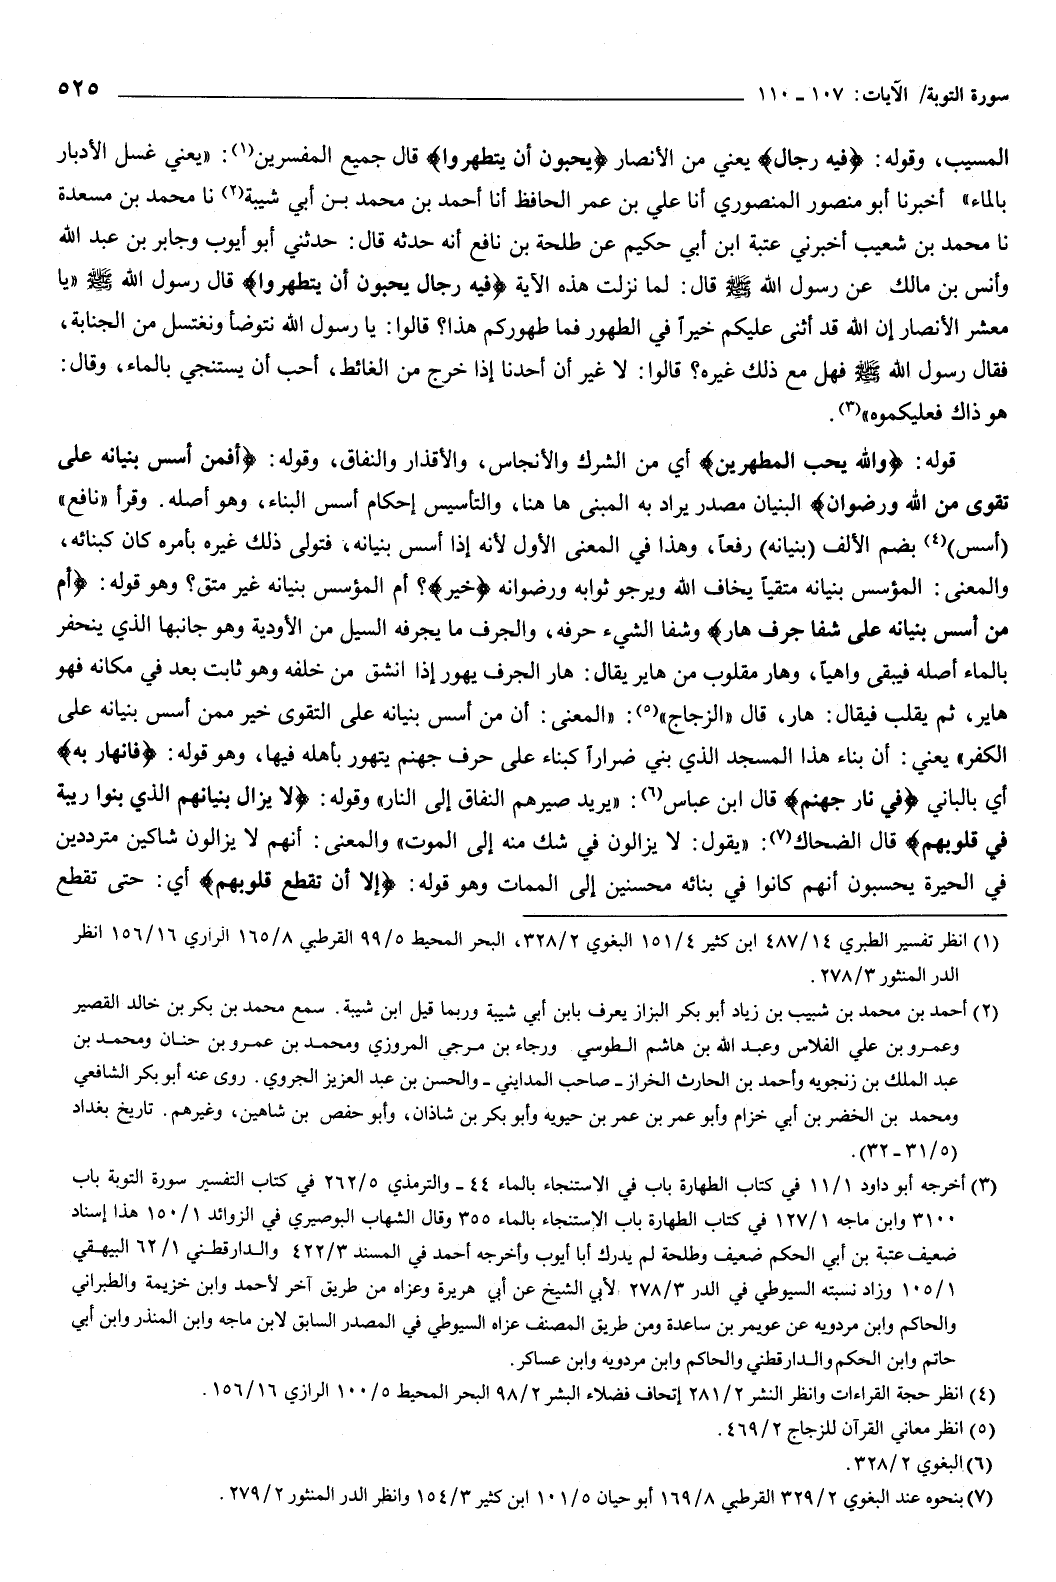 سورة التوبة/ الآيات: ١٠٧ ـ ١١٠ ٥٢٥
المسيب، وقوله: ﴿فيه رجال﴾ يعني من الأنصار ﴿يحبون أن يتطهروا﴾ قال جميع المفسرين(١): «يعني غسل الأدبار
بالماء» أخبرنا أبو منصور المنصوري أنا علي بن عمر الحافظ أنا أحمد بن محمد بـن أبي شيبة(٢) نا محمد بن مسعدة
نا محمد بن شعيب أخبرني عتبة ابن أبي حكيم عن طلحة بن نافع أنه حدثه قال: حدثني أبو أيوب وجابر بن عبد الله
وأنس بن مالك عن رسول الله ﷺ قال: لما نزلت هذه الآية ﴿فيه رجال يحبون أن يتطهروا﴾ قال رسول الله ﷺ «يا
معشر الأنصار إن الله قد أثنى عليكم خيراً في الطهور فما طهوركم هذا؟ قالوا: يا رسول الله نتوضأ ونغتسل من الجنابة،
فقال رسول الله ﷺ فهل مع ذلك غيره؟ قالوا: لا غير أن أحدنا إذا خرج من الغائط، أحب أن يستنجي بالماء، وقال:
هو ذاك فعليكموه»(٣).
قوله: ﴿والله يحب المطهرين﴾ أي من الشرك والأنجاس، والأقذار والنفاق، وقوله: ﴿أفمن أسس بنيانه على
تقوى من الله ورضوان﴾ البنيان مصدر يراد به المبنى ها هنا، والتأسيس إحكام أسس البناء، وهو أصله. وقرأ «نافع»
(أسس)(٤) بضم الألف (بنيانه) رفعاً، وهذا في المعنى الأول لأنه إذا أسس بنيانه، فتولى ذلك غيره بأمره كان كبنائه،
والمعنى: المؤسس بنيانه متقياً يخاف الله ويرجو ثوابه ورضوانه ﴿خير﴾؟ أم المؤسس بنيانه غير متق؟ وهو قوله: ﴿أم
من أسس بنيانه على شفا جرف هار﴾ وشفا الشيء حرفه، والجرف ما يجرفه السيل من الأودية وهو جانبها الذي ينحفر
بالماء أصله فيبقى واهياً، وهار مقلوب من هاير يقال: هار الجرف يهور إذا انشق من خلفه وهو ثابت بعد في مكانه فهو
هاير، ثم يقلب فيقال: هار، قال «الزجاج»(٥): «المعنى: أن من أسس بنيانه على التقوى خير ممن أسس بنيانه على
الكفر» يعني: أن بناء هذا المسجد الذي بني ضراراً كبناء على حرف جهنم يتهور بأهله فيها، وهو قوله: ﴿فانهار به﴾
أي بالباني ﴿في نار جهنم﴾ قال ابن عباس(٦): «يريد صيرهم النفاق إلى النار» وقوله: ﴿لا يزال بنيانهم الذي بنوا ريبة
في قلوبهم﴾ قال الضحاك(٧): «يقول: لا يزالون في شك منه إلى الموت» والمعنى: أنهم لا يزالون شاكين مترددين
في الحيرة يحسبون أنهم كانوا في بنائه محسنين إلى الممات وهو قوله: ﴿إلا أن تقطع قلوبهم﴾ أي: حتى تقطع
(١) انظر تفسير الطبري ١٤/ ٤٨٧ ابن كثير ٤/ ١٥١ البغوي ٢/ ٣٢٨، البحر المحيط ٥/ ٩٩ القرطبي ٨/ ١٦٥ الرازي ١٦/ ١٥٦ انظر
الدر المنثور ٣/ ٢٧٨.
(٢) أحمد بن محمد بن شبيب بن زياد أبو بكر البزاز يعرف بابن أبي شيبة وربما قيل ابن شيبة. سمع محمد بن بكر بن خالد القصير
وعمـرو بن علي الفلاس وعبـد الله بن هاشم الـطوسي ورجاء بن مـرجي المروزي ومحمـد بن عمـرو بن حنـان ومحمـد بن
عبد الملك بن زنجويه وأحمد بن الحارث الخراز ـ صاحب المدايني ـ والحسن بن عبد العزيز الجروي. روى عنه أبو بكر الشافعي
ومحمد بن الخضر بن أبي خزام وأبو عمر بن عمر بن حيويه وأبو بكر بن شاذان، وأبو حفص بن شاهين، وغيرهم. تاريخ بغداد
(٥/ ٣١ ـ ٣٢).
(٣) أخرجه أبو داود ١/ ١١ في كتاب الطهارة باب في الاستنجاء بالماء ٤٤ ـ والترمذي ٥/ ٢٦٢ في كتاب التفسير سورة التوبة باب
٣١٠٠ وابن ماجه ١/ ١٢٧ في كتاب الطهارة باب الإستنجاء بالماء ٣٥٥ وقال الشهاب البوصيري في الزوائد ١/ ١٥٠ هذا إسناد
ضعيف عتبة بن أبي الحكم ضعيف وطلحة لم يدرك أبا أيوب وأخرجه أحمد في المسند ٣/ ٤٢٢ والـدارقطـني ١/ ٦٢ البيهـقي
١/ ١٠٥ وزاد نسبته السيوطي في الدر ٣/ ٢٧٨ لأبي الشيخ عن أبي هريرة وعزاه من طريق آخر لأحمد وابن خزيمة والطبراني
والحاكم وابن مردويه عن عويمر بن ساعدة ومن طريق المصنف عزاه السيوطي في المصدر السابق لابن ماجه وابن المنذر وابن أبي
حاتم وابن الحكم والـدارقطني والحاكم وابن مردويه وابن عساكر.
(٤) انظر حجة القراءات وانظر النشر ٢/ ٢٨١ إتحاف فضلاء البشر ٢/ ٩٨ البحر المحيط ٥/ ١٠٠ الرازي ١٦/ ١٥٦.
(٥) انظر معاني القرآن للزجاج ٢/ ٤٦٩.
(٦) البغوي ٢/ ٣٢٨.
(٧) بنحوه عند البغوي ٢/ ٣٢٩ القرطبي ٨/ ١٦٩ أبو حيان ٥/ ١٠١ ابن كثير ٣/ ١٥٤ وانظر الدر المنثور ٢/ ٢٧٩.